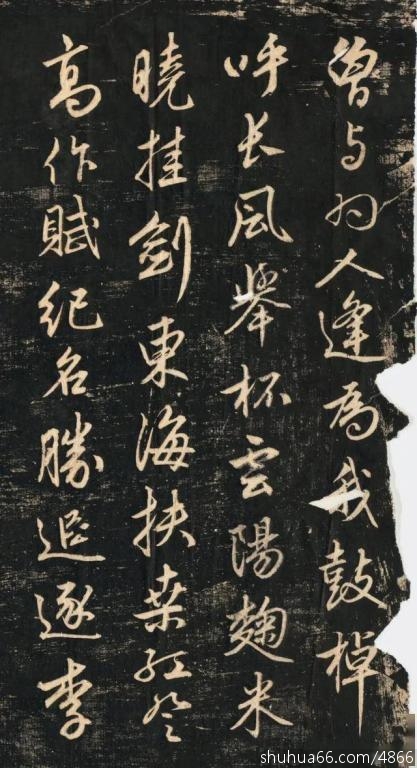 曾与人逢為我鼓棹
呼长風舉杯云陽麹米
曉挂劍東海扶桒紅登
高作賦紀名勝追逐李
shuhua66.com/4866